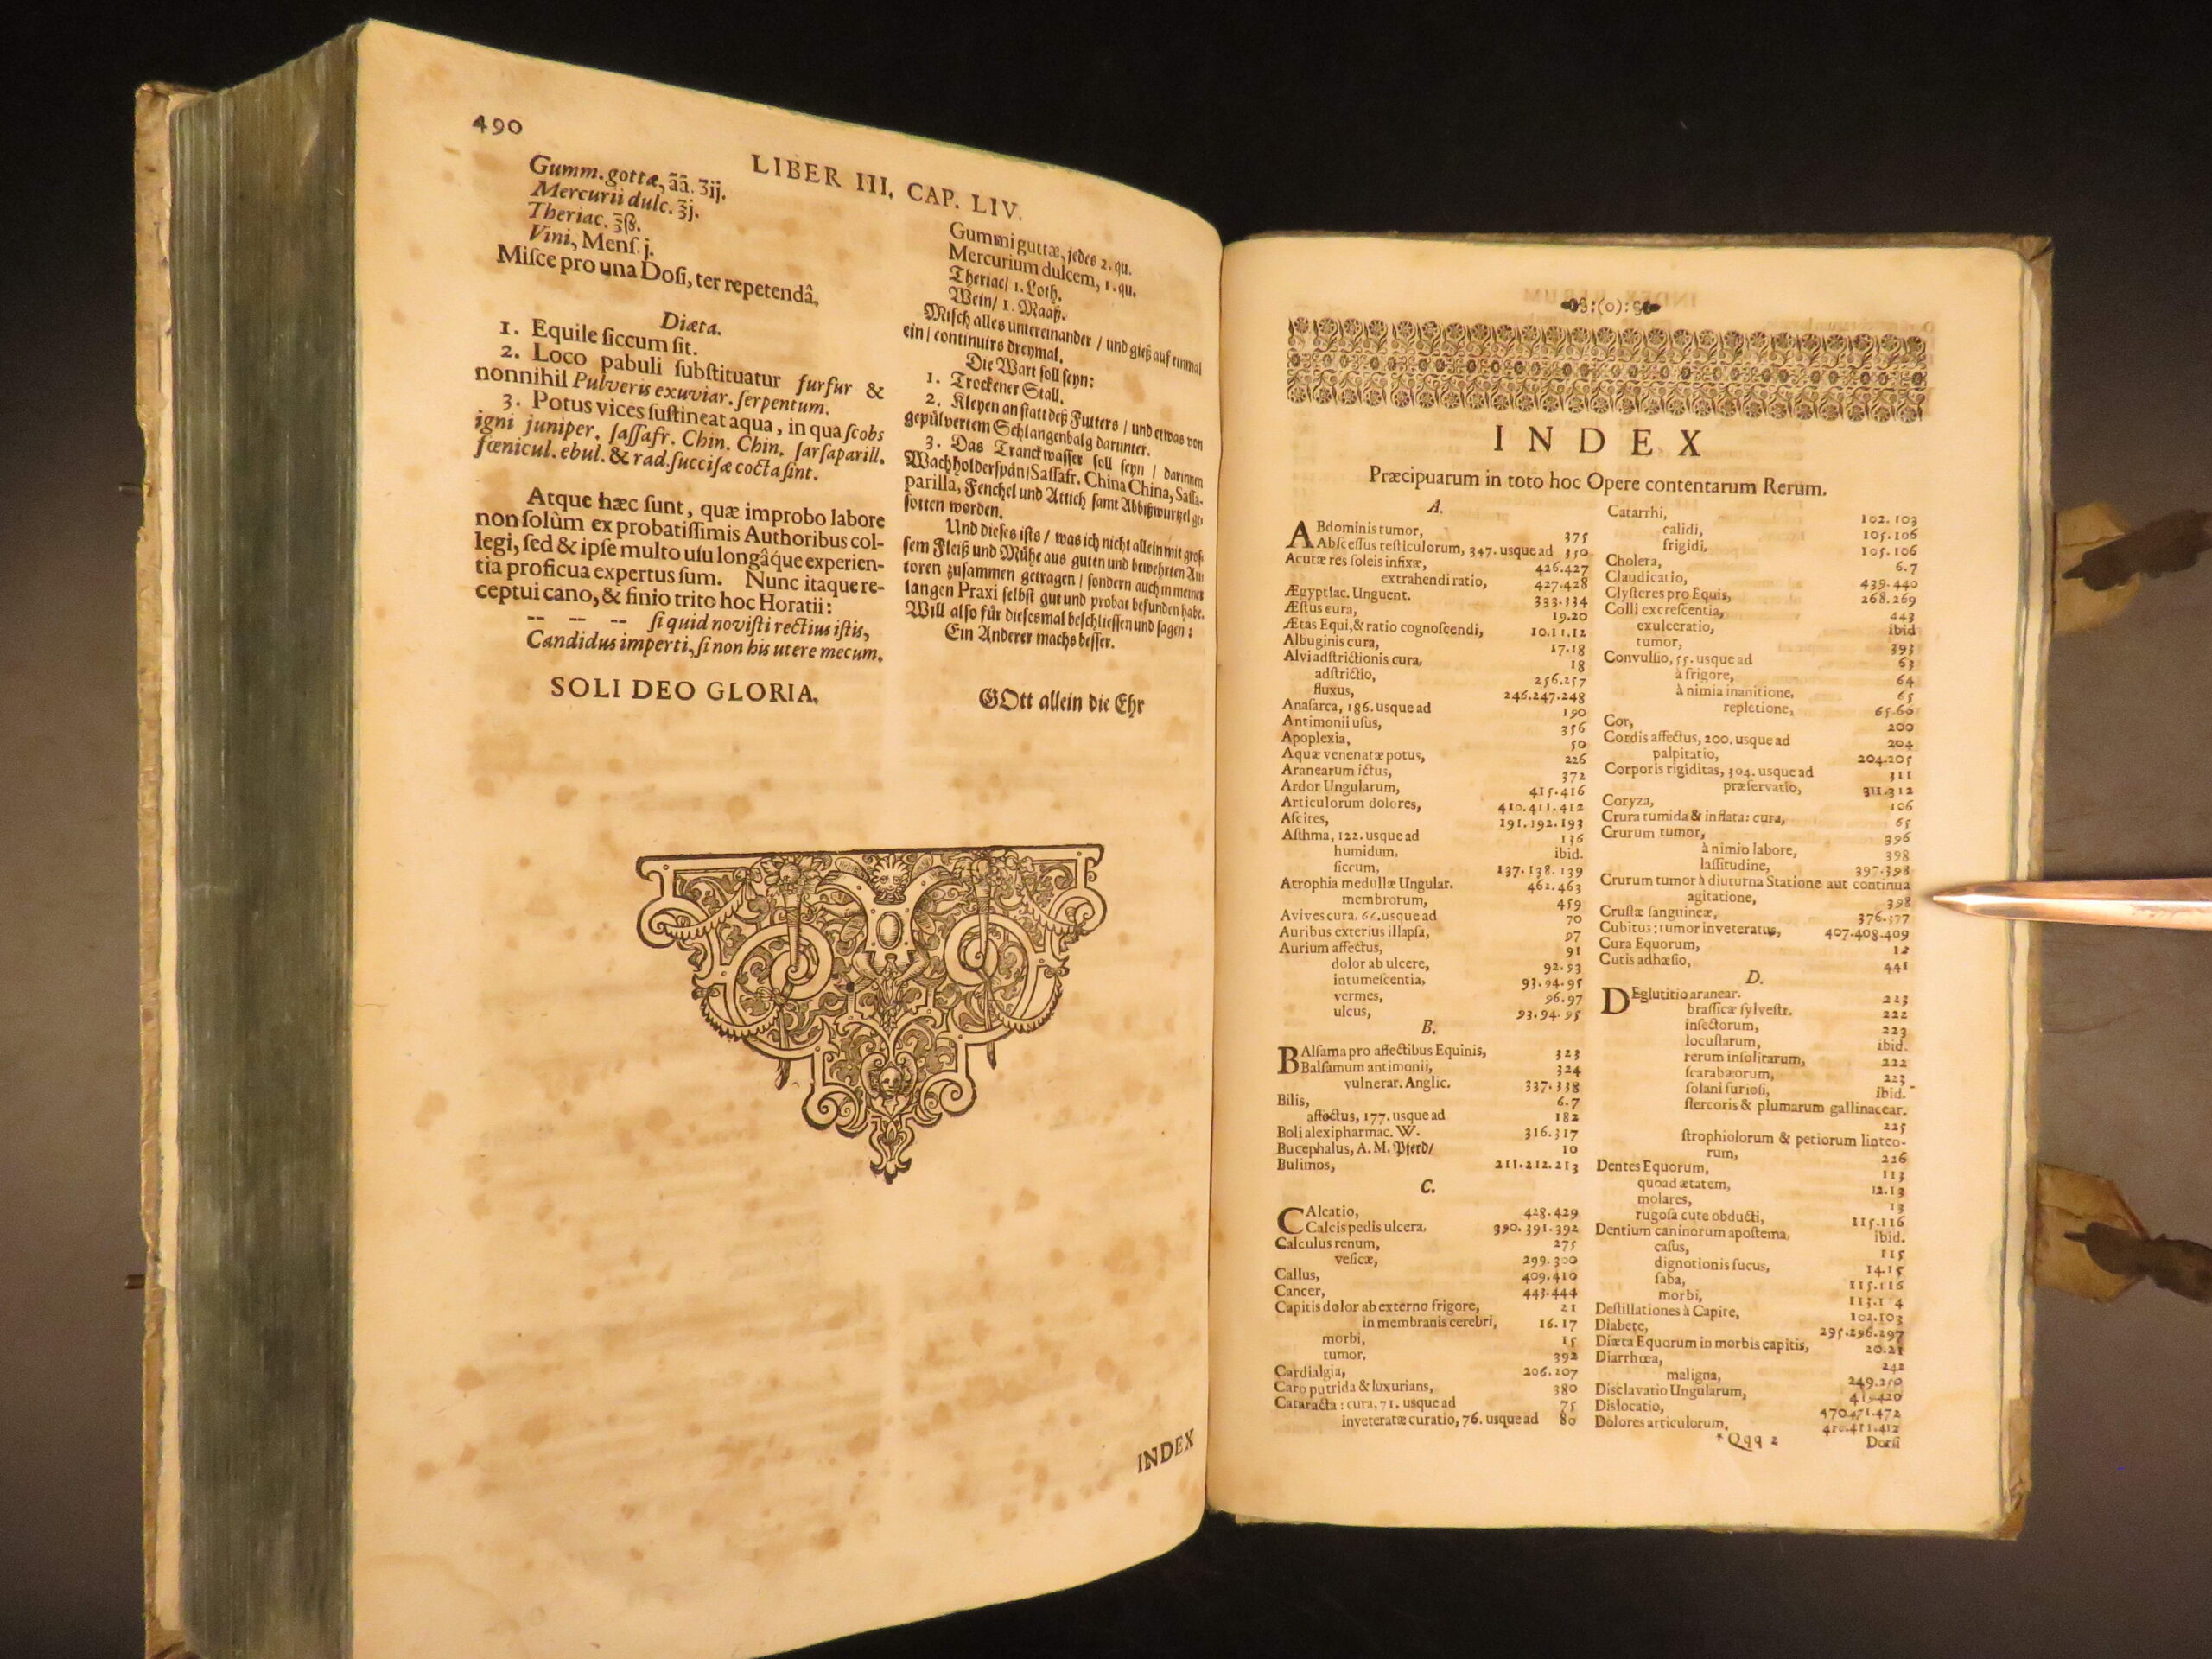 490
LIBER III. CAP. LIV.
Gumm. gottæ, āā. ʒij.
Mercurii dulc. ʒj.
Theriac. ℥ß.
Vini, Menſ. j.
Miſce pro una Doſi, ter repetendâ.
Diæta.
1. Equile ſiccum ſit.
2. Loco pabuli ſubſtituatur furfur &
nonnihil Pulveris exuviar. ſerpentum.
3. Potus vices ſuſtineat aqua, in qua ſcobs
igni juniper. ſaſſafr. Chin. Chin. ſarſaparill.
fœnicul. ebul. & rad. ſucciſæ cocta ſint.
Atque hæc ſunt, quæ improbo labore
non ſolùm ex probatiſſimis Authoribus col-
legi, ſed & ipſe multo uſu longâque experien-
tia proficua expertus ſum. Nunc itaque re-
ceptui cano, & finio trito hoc Horatii:
-- -- -- ſi quid noviſti rectius iſtis,
Candidus imperti, ſi non his utere mecum.
SOLI DEO GLORIA.
Gummi guttæ, jedes 2. qu.
Mercurium dulcem, 1. qu.
Theriac/ 1. Loth.
Wein/ 1. Maaß.
Miſch alles untereinander / und gieß auf einmal
ein / continuirs dreymal.
Die Wart ſoll ſeyn:
1. Trockener Stall.
2. Kleyen an ſtatt deß Futters / und etwas von
gepülvertem Schlangenbalg darunter.
3. Das Tranckwaſſer ſoll ſeyn / darinnen
Wachholderſpän/ Saſſafr. China China, Saſſa-
parilla, Fenchel und Attich ſamt Abbißwurtzel ge-
ſotten worden.
Und dieſes iſts / was ich nicht allein mit groſ-
ſem Fleiß und Mühe aus guten und bewehrten Au-
toren zuſammen getragen / ſondern auch in meiner
langen Praxi ſelbſt gut und probat befunden habe.
Will alſo für dieſesmal beſchlieſſen und ſagen:
Ein Anderer machs beſſer.
GOtt allein die Ehr
INDEX
:(o):
INDEX
Præcipuarum in toto hoc Opere contentarum Rerum.
A.
ABdominis tumor, 375
Abſceſſus teſticulorum, 347. usque ad 350
Acutæ res ſoleis infixæ, 426.427
extrahendi ratio, 427.428
Ægyptiac. Unguent. 333.334
Æſtus cura, 19.20
Ætas Equi, & ratio cognoſcendi, 10.11.12
Albuginis cura, 17.18
Alvi adſtrictionis cura, 18
adſtrictio, 256.257
fluxus, 246.247.248
Anaſarca, 186. usque ad 190
Antimonii uſus, 356
Apoplexia, 50
Aquæ venenatæ potus, 226
Aranearum ictus, 372
Ardor Ungularum, 415.416
Articulorum dolores, 410.411.412
Aſcites, 191.192.193
Aſthma, 122. usque ad 136
humidum, ibid.
ſiccum, 137.138.139
Atrophia medullæ Ungular. 462.463
membrorum, 459
Avives cura, 66. usque ad 70
Auribus exterius illapſa, 97
Aurium affectus, 91
dolor ab ulcere, 92.93
intumeſcentia, 93.94.95
vermes, 96.97
ulcus, 93.94.95
B.
BAlſama pro affectibus Equinis, 323
Balſamum antimonii, 324
vulnerar. Anglic. 337.338
Bilis, 6.7
affectus, 177. usque ad 182
Boli alexipharmac. W. 316.317
Bucephalus, A. M. Pferd/ 10
Bulimos, 211.212.213
C.
CAlcatio, 428.429
Calcis pedis ulcera, 390.391.392
Calculus renum, 275
veſicæ, 299.300
Callus, 409.410
Cancer, 443.444
Capitis dolor ab externo frigore, 21
in membranis cerebri, 16.17
morbi, 15
tumor, 392
Cardialgia, 206.207
Caro putrida & luxurians, 380
Cataracta: cura, 71. usque ad 75
inveteratæ curatio, 76. usque ad 80
Catarrhi, 102.103
calidi, 105.106
frigidi, 105.106
Cholera, 6.7
Claudicatio, 439.440
Clyſteres pro Equis, 268.269
Colli excreſcentia, 443
exulceratio, ibid
tumor, 393
Convulſio, 55. usque ad 63
à frigore, 64
à nimia inanitione, 65
repletione, 65.66
Cor, 200
Cordis affectus, 200. usque ad 204
palpitatio, 204.205
Corporis rigiditas, 304. usque ad 311
præſervatio, 311.312
Coryza, 106
Crura tumida & inflata: cura, 65
Crurum tumor, 396
à nimio labore, 398
laſſitudine, 397.398
Crurum tumor à diuturna Statione aut continua
agitatione, 398
Cruſtæ ſanguineæ, 376.377
Cubitus: tumor inveteratus, 407.408.409
Cura Equorum, 12
Cutis adhæſio, 441
D.
DEglutitio aranear. 223
braſſicæ ſylveſtr. 222
inſectorum, 223
locuſtarum, ibid.
rerum inſolitarum, 222
ſcarabæorum, 223
ſolani furioſi, ibid.
ſtercoris & plumarum gallinacear.
225
ſtrophiolorum & petiorum linteo-
rum, 226
Dentes Equorum, 113
quoad ætatem, 12.13
molares, 13
rugoſa cute obducti, 115.116
Dentium caninorum apoſtema, ibid.
caſus, 115
dignotionis ſucus, 14.15
faba, 115.116
morbi, 113.1 4
Deſtillationes à Capite, 102.103
Diabete, 295.296.297
Diæta Equorum in morbis capitis, 20.21
Diarrhœa, 242
maligna, 249.250
Disclavatio Ungularum, 420
Dislocatio, 470.471.472
Dolores articulorum, 410.411.412
* Qqq 2
Dorſi